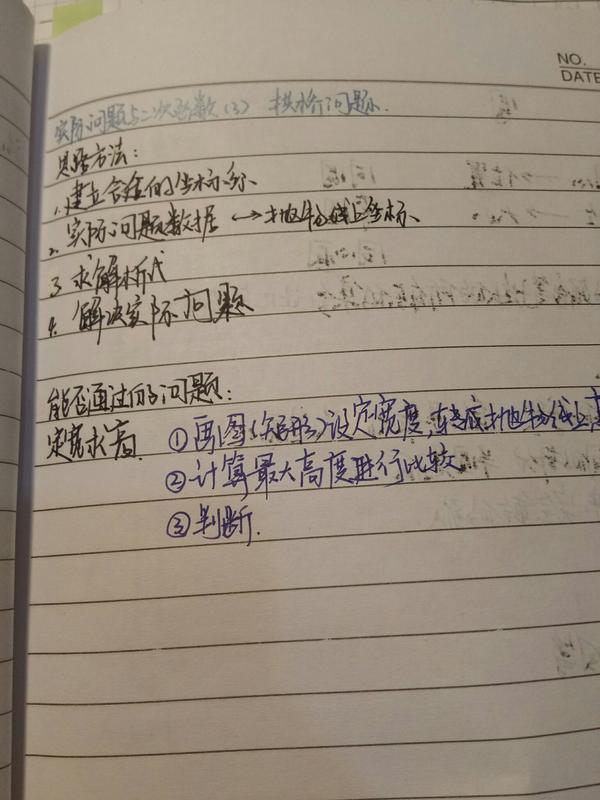 NO.
DATE
实际问题与二次函数(3) 拱桥问题.
思路方法:
1. 建立合适的坐标系
2. 实际问题数据 ↔ 抛物线上坐标
3. 求解析式
4. 解决实际问题
能否通过的问题:
定宽求高. ①画图(矩形)设定宽度,转成抛物线上
②计算最大高度进行比较
③判断.